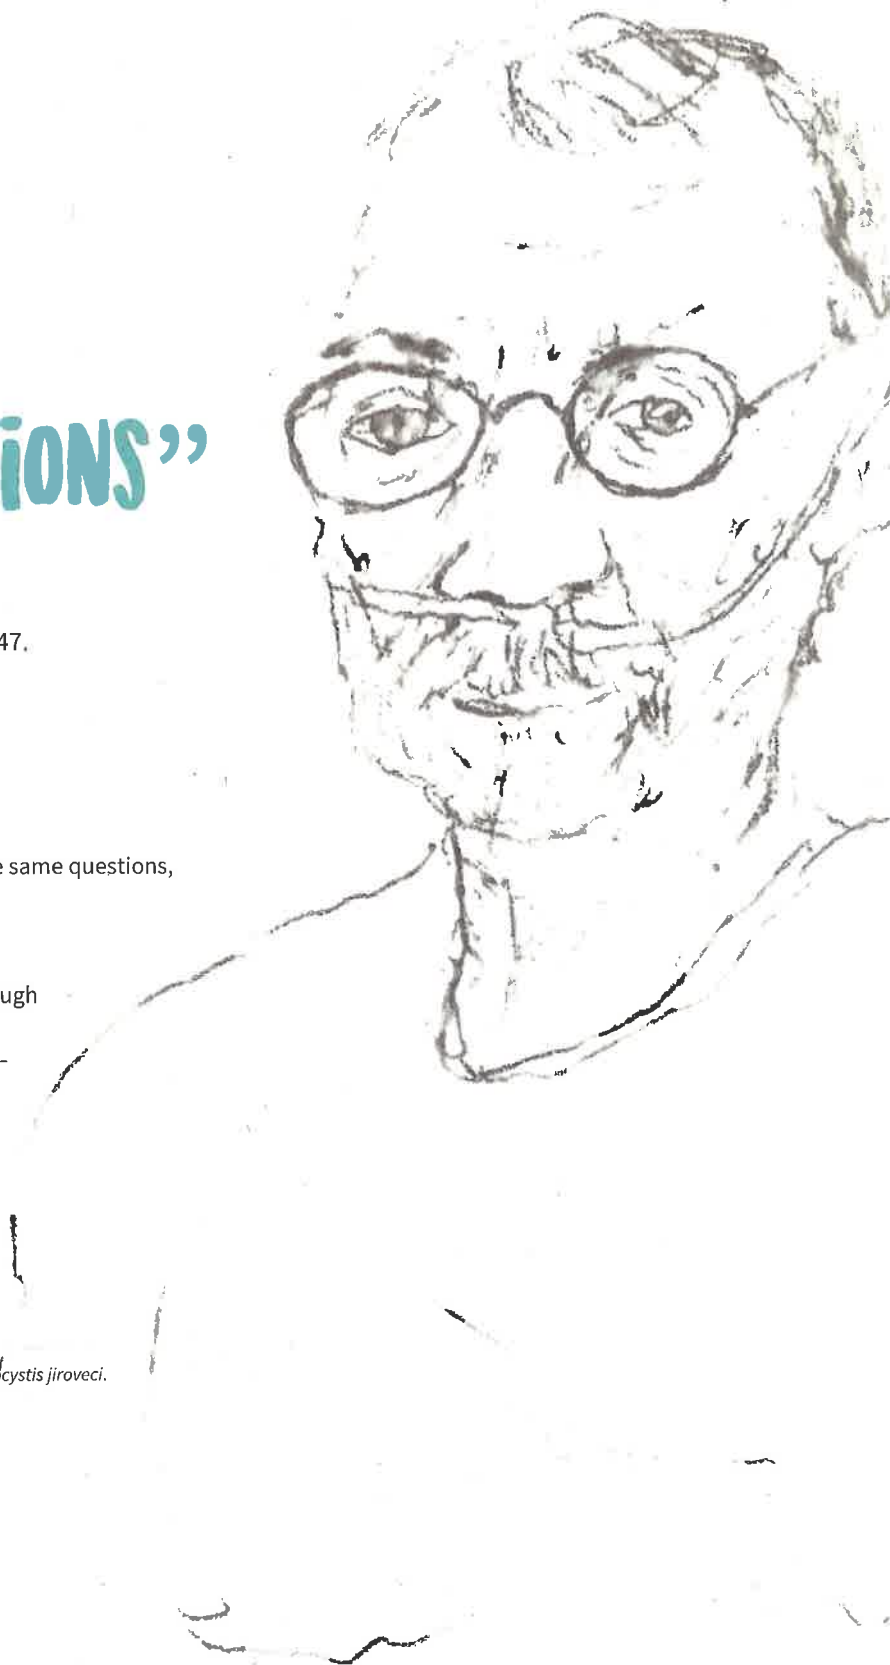 iONS”
47.
e same questions,
ugh
–
cystis jiroveci.